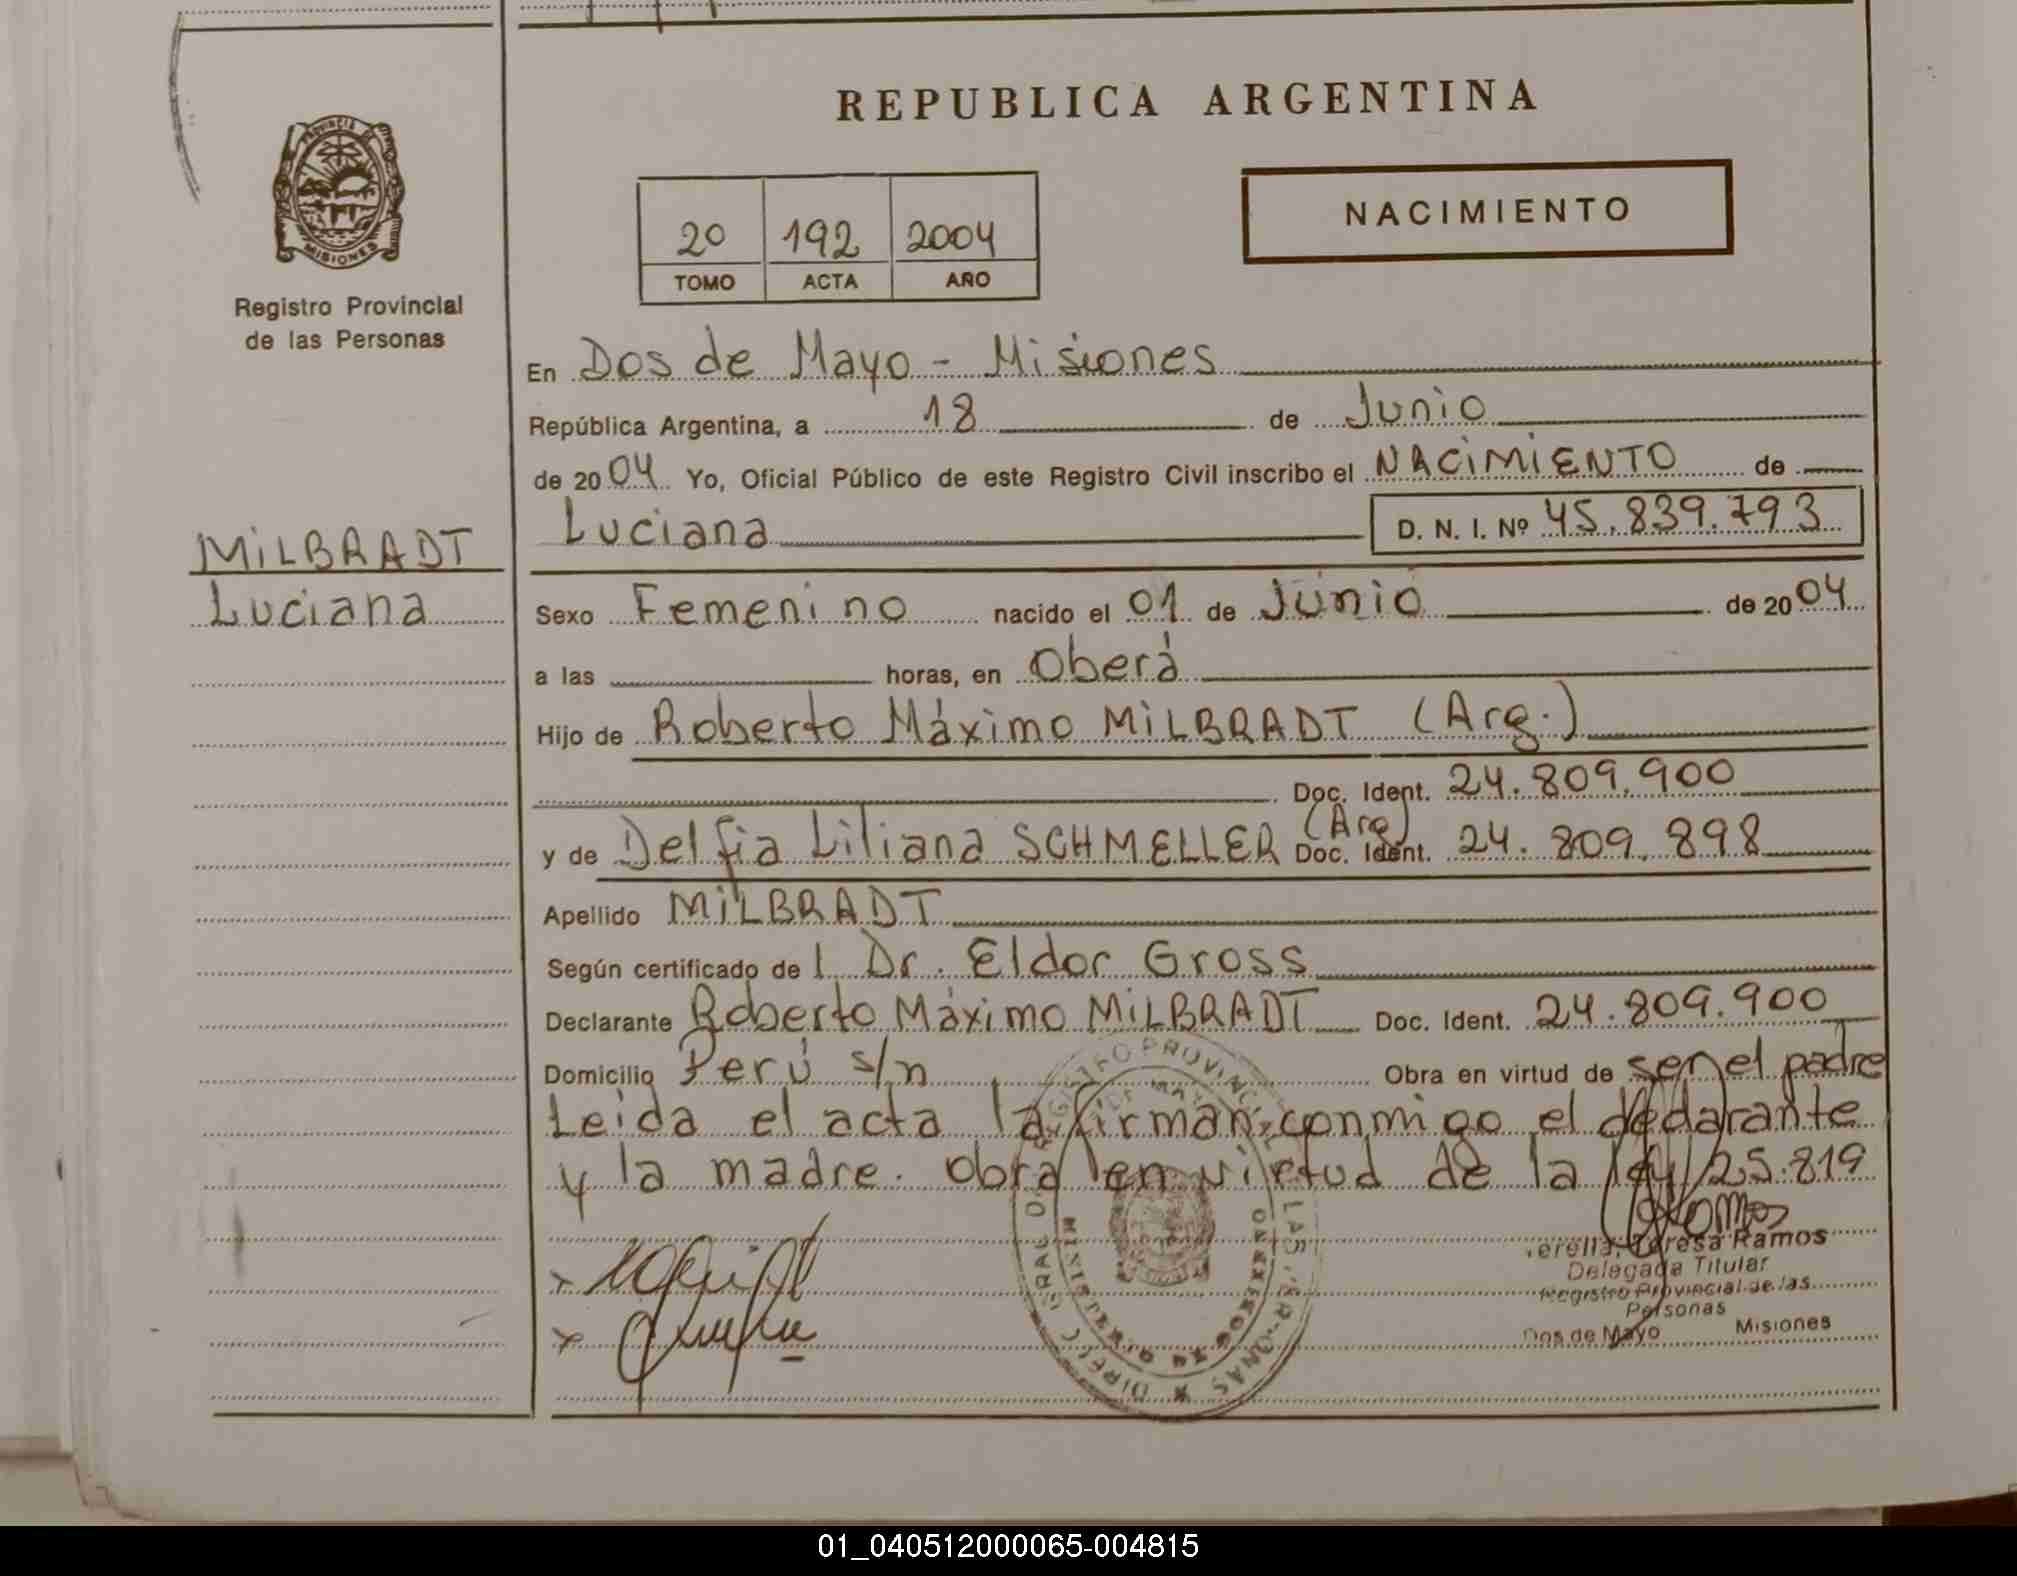 REPUBLICA ARGENTINA
PROVINCIA DE
MISIONES
Registro Provincial
de las Personas
20 192 2004
TOMO ACTA AÑO
NACIMIENTO
En Dos de Mayo - Misiones
República Argentina, a 18 de Junio
de 2004 Yo, Oficial Público de este Registro Civil inscribo el NACIMIENTO de
Luciana D. N. I. Nº 45.839.793
MILBRADT
Luciana
Sexo Femenino nacido el 01 de Junio de 2004
a las horas, en Oberá
Hijo de Roberto Máximo MILBRADT (Arg.)
Doc. Ident. 24.809.900
y de Delfia Liliana SCHMELLER (Arg) Doc. Ident. 24.809.898
Apellido MILBRADT
Según certificado del Dr. Eldor Gross
Declarante Roberto Máximo MILBRADT Doc. Ident. 24.809.900
Domicilio Perú s/n Obra en virtud de ser el padre
Leida el acta la firman conmigo el declarante
y la madre. Obra en virtud de la ley 25.819
Teresa Ramos
Delegada Titular
Registro Provincial de las
Personas
Dos de Mayo Misiones
01_040512000065-004815